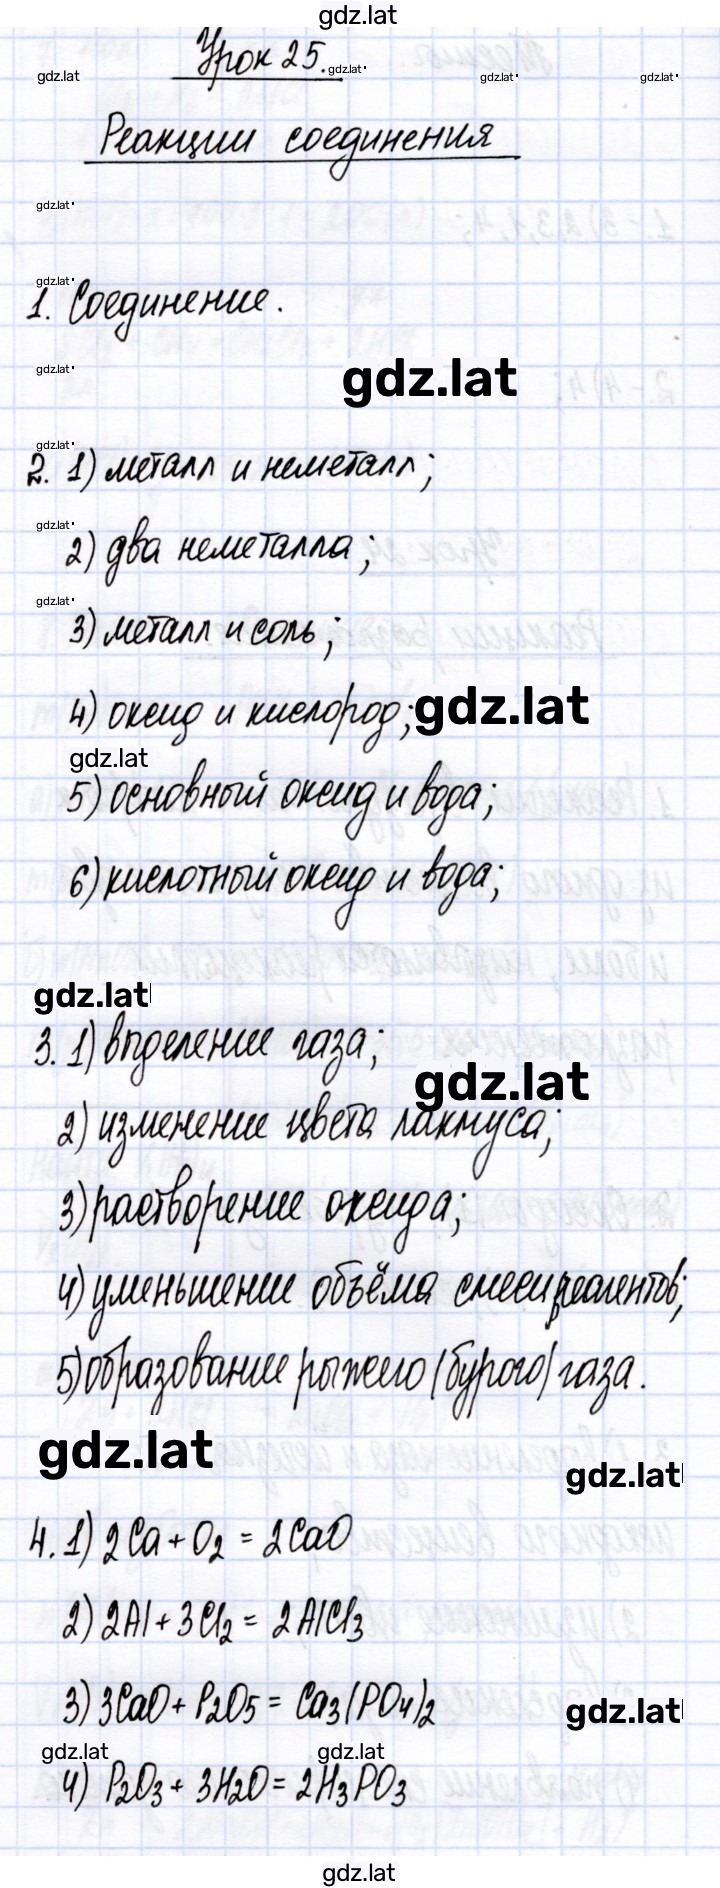 gdz.lat
Урок 25.
gdz.lat gdz.lat gdz.lat gdz.lat
Реакции соединения
gdz.lat
gdz.lat
1. Соединение.
gdz.lat
gdz.lat
gdz.lat
2. 1) металл и неметалл;
gdz.lat
2) два неметалла;
gdz.lat
3) металл и соль;
4) оксид и кислород;
gdz.lat
gdz.lat
5) основный оксид и вода;
6) кислотный оксид и вода;
gdz.lat
3. 1) выделение газа;
gdz.lat
2) изменение цвета лакмуса;
3) растворение оксида;
4) уменьшение объёма смеси реагентов;
5) образование рыжего (бурого) газа.
gdz.lat
gdz.lat
4. 1) 2Ca + O2 = 2CaO
2) 2Al + 3Cl2 = 2AlCl3
3) 3CaO + P2O5 = Ca3(PO4)2
gdz.lat
gdz.lat gdz.lat
4) P2O3 + 3H2O = 2H3PO3
gdz.lat